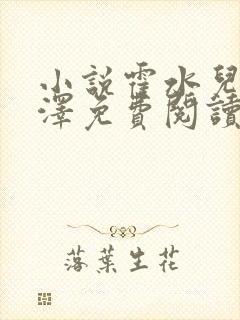 小説霍水兒
澤免費閱讀
落葉生花